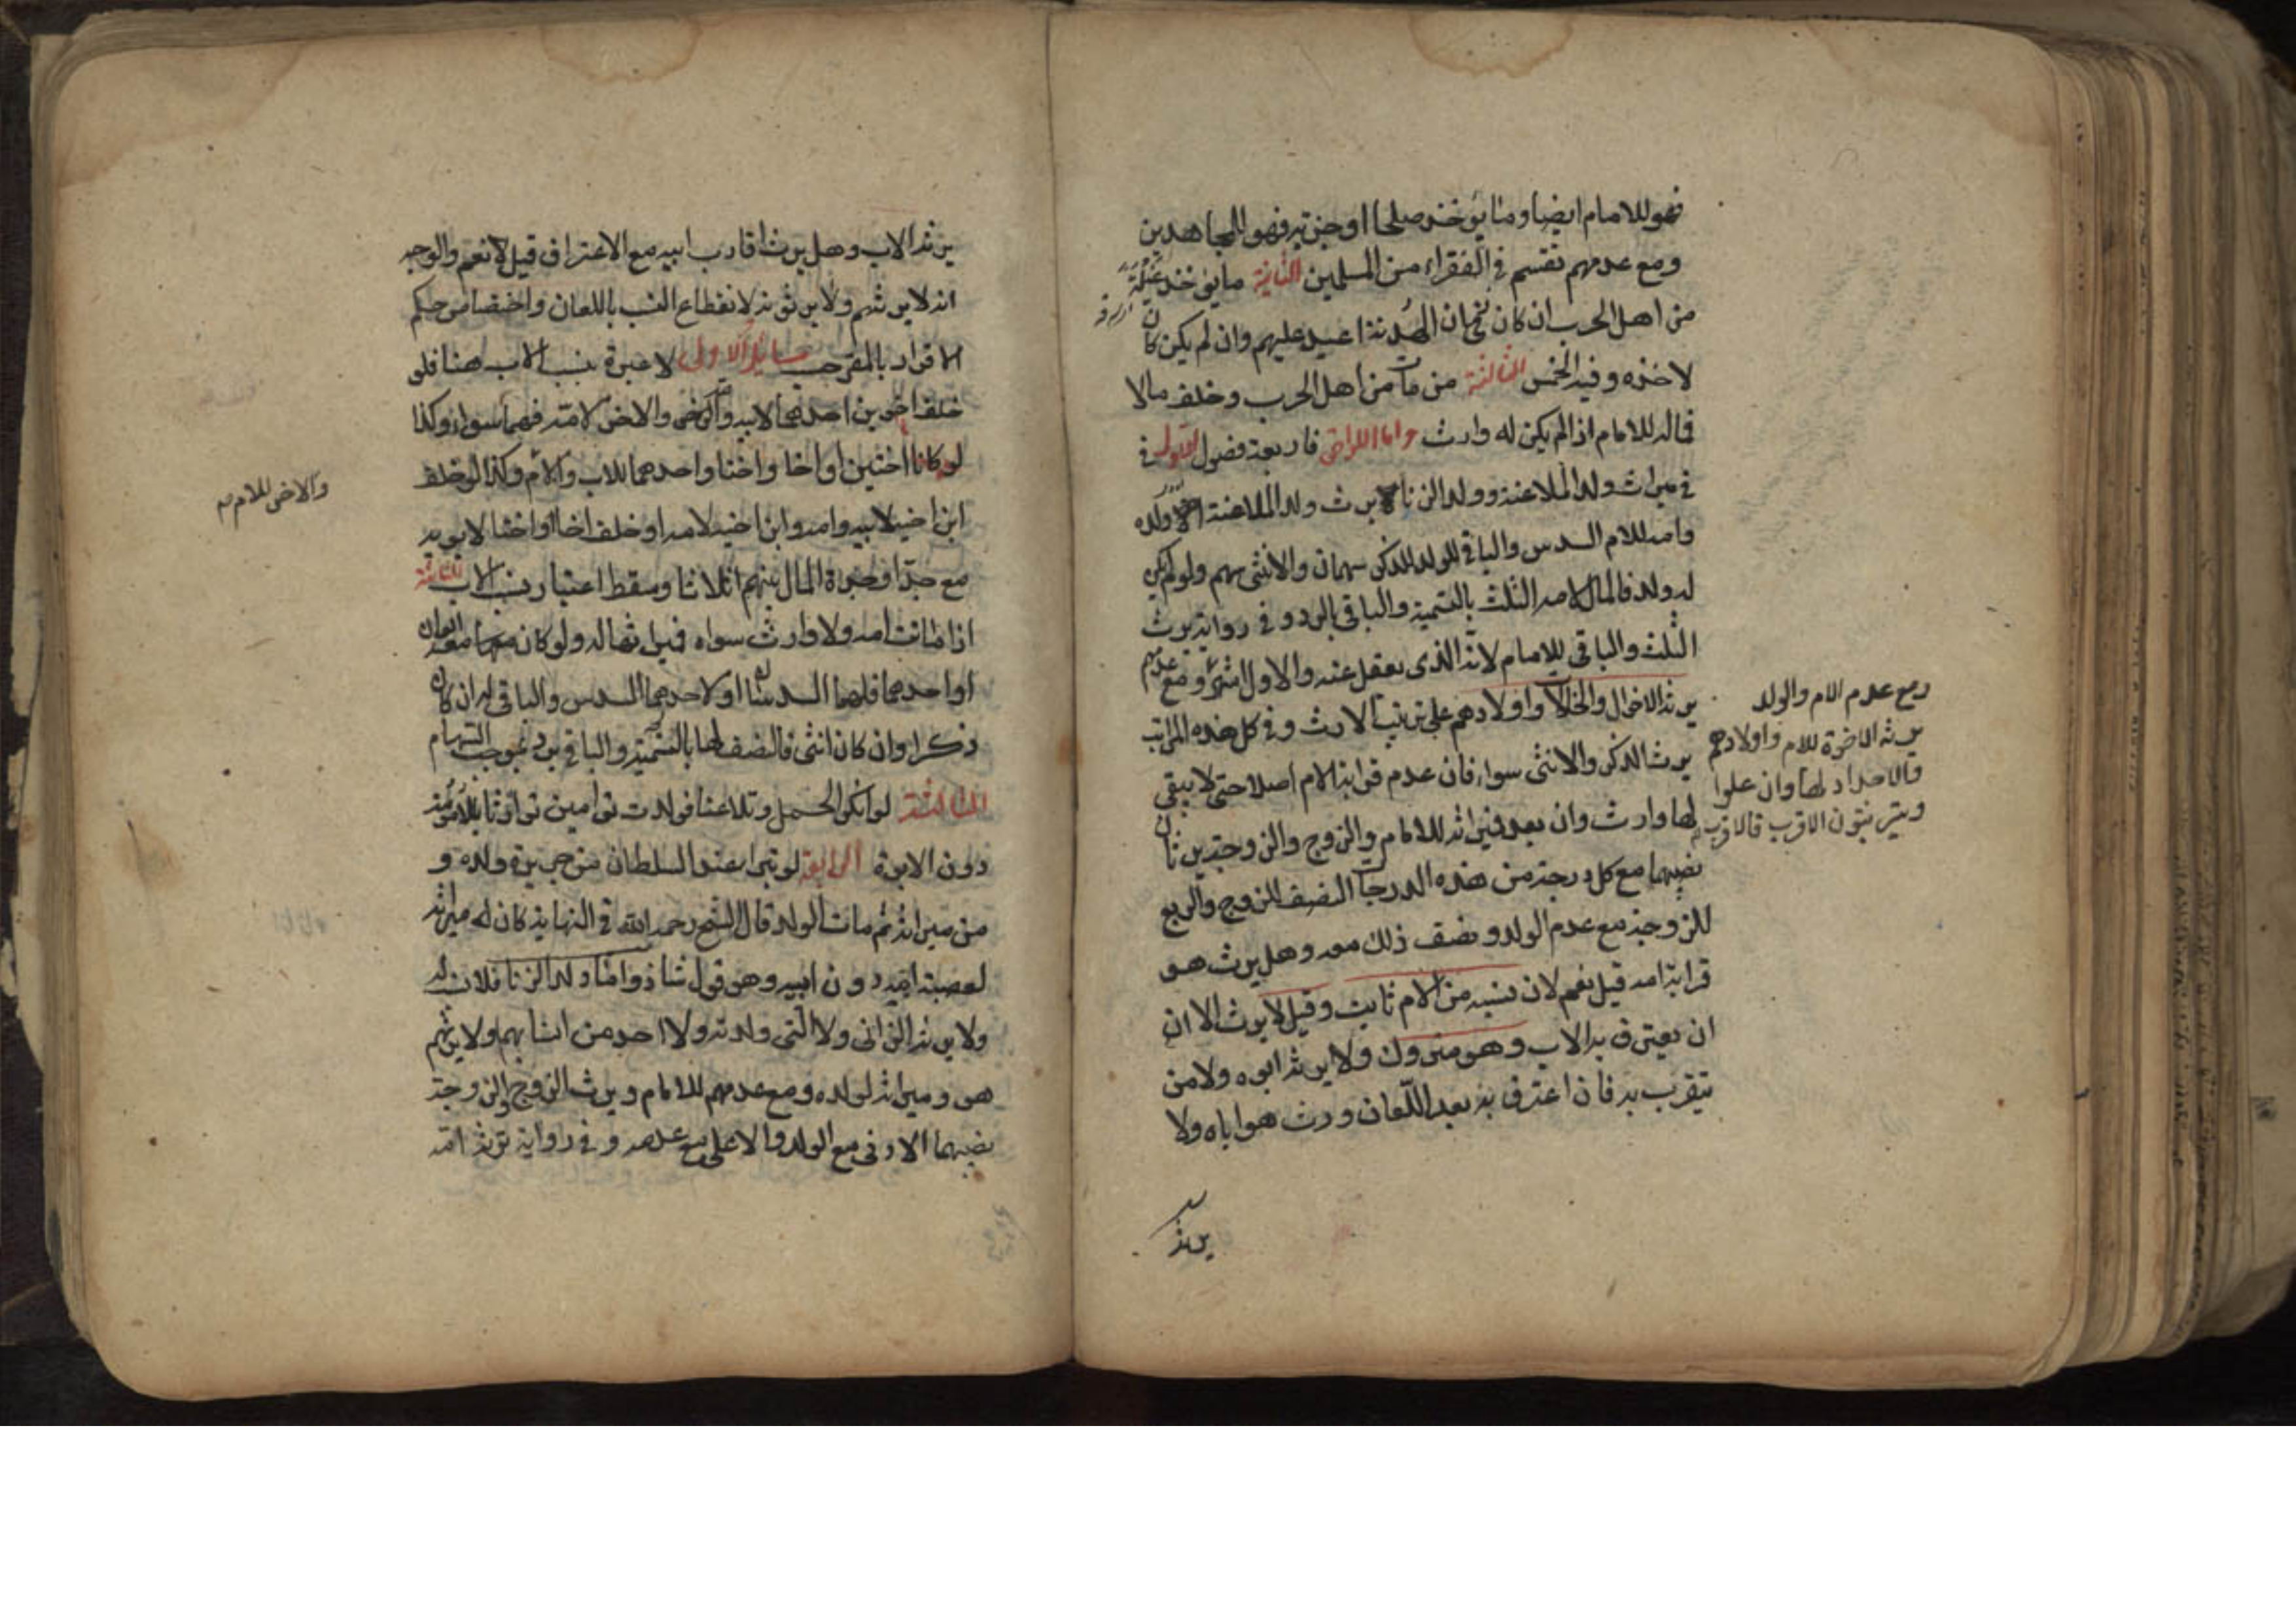 فهو للامام ايضا وما يؤخذ صلحا او جزية فهو للمجاهدين
ومع عدمهم تقسم في الفقراء من المسلمين الثانية ما يؤخذ غيلة
من اهل الحرب ان كان في زمان الهدنة اعيد عليهم وان لم يكن كان
لاخذه وفيه الخمس الثالثة من مات من اهل الحرب وخلف مالا
فماله للامام اذا لم يكن له وارث واما اللواحق فاربعة فصول الاول في
في ميراث ولد الملاعنة وولد الزنا لا يرث ولد الملاعنة الا ولده
وامه للام السدس والباقي للولد للذكر سهمان والانثى سهم ولو لم يكن
له ولد فالمال لامه الثلث بالتسمية والباقي بالرد وفي رواية يرث
الثلث والباقي للامام لانه الذي يعقل عنه والاول اشهر ومع عدمهم
يرثه الاخوال والخالات واولادهم على ترتيب الارث وفي كل هذه المراتب
يرث الذكر والانثى سواء فان عدم قرابة الام اصلا حتى لا يبقى
لها وارث وان بعد فميراثه للامام والزوج والزوجة يرثان
نصيبهما مع كل درجة من هذه الدرجات النصف للزوج والربع
للزوجة مع عدم الولد ونصف ذلك معه وهل يرث هو
قرابة امه قيل نعم لان نسبه من الام ثابت وقيل لا يرث الا ان
ان يعترف به الاب وهو متروك ولا يرثه ابوه ولا من
يتقرب به فان اعترف به بعد اللعان ورث هو اباه ولا
يرثه
ومع عدم الام والولد
يرثه الاخوة للام واولادهم
والاجداد لها وان علوا
ويترتبون الاقرب فالاقرب
يرثه الاب وهل يرث اقارب ابيه مع الاعتراف قيل نعم والوجه
انه لا يرثهم ولا يرثونه لانقطاع النسب باللعان واختصاص حكم
الاقرار بالمقر حسب مسايل الاولى لا عبرة بنسب الاب هنا فلو
خلف اخوين احدهما لابيه وامه والاخر لامه فهما سواء وكذا
لو كانا اختين او اخا واختا واحدهما للاب والام وكذا لو خلف
والاخر للام
ابن اخيه لابيه وامه وابن اخيه لامه او خلف اخا واختا لابويه
مع جد او جدة المال بينهم اثلاثا وسقط اعتبار نسب الاب الثانية
اذا ماتت امه ولا وارث سواه فميراثها له ولو كان معه ابوان
او احدهما فلهما السدسان او لاحدهما السدس والباقي له ان كان
ذكرا وان كان انثى فالنصف لها بالتسمية والباقي يرد بموجب السهام
الثالثة لو انكر الحمل وتلاعنا فولدت توامين توارثا بالامومة
دون الابوة الرابعة لو تبرا عند السلطان من جريرة ولده و
من ميراثه ثم مات الولد قال الشيخ رحمه الله في النهاية كان له ميراثه
لعصبة ابيه دون ابيه وهو قول شاذ واما ولد الزنا فلا نسب له
ولا يرثه الزاني ولا التي ولدته ولا احد من انسابهم ولا يرثهم
هو وميراثه لولده ومع عدمهم للامام ويرث الزوج والزوجة
نصيبهما الادنى مع الولد والاعلى مع عدمه وفي رواية ترثه امه